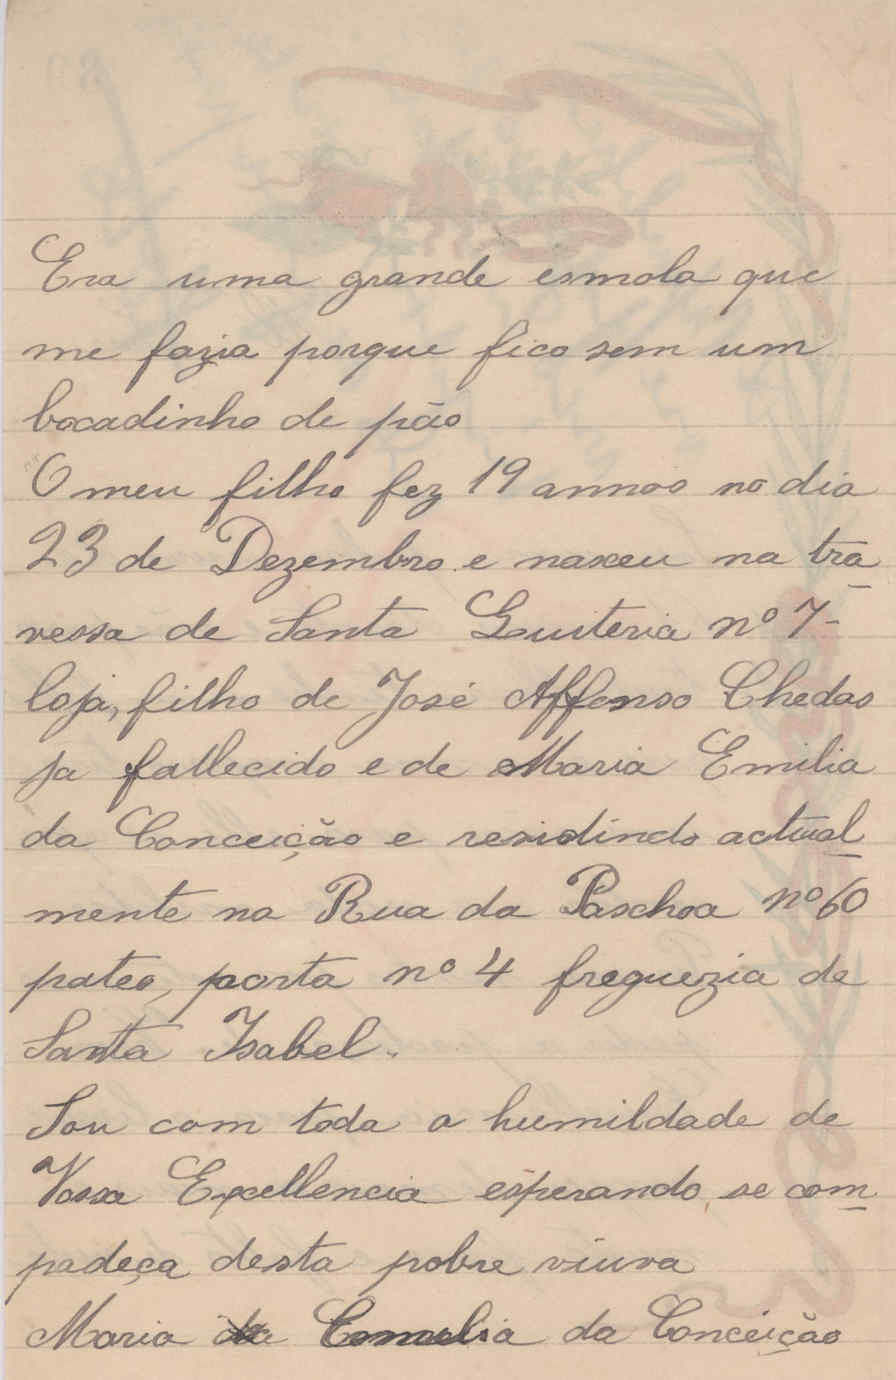 Era uma grande esmola que
me fazia porque fico sem um
bocadinho de pão
O meu filho fez 19 annos no dia
23 de Dezembro e nasceu na tra
vessa de Santa Quiteria nº 7-
loja, filho de José Affonso Chedas
ja fallecido e de Maria Emilia
da Conceição e residindo actual
mente na Rua da Paschoa nº 60
pateo, porta nº 4 freguezia de
Santa Isabel.
Sou com toda a humildade de
Vossa Excellencia esperando se com
padeça desta pobre viuva
Maria da da Conceição